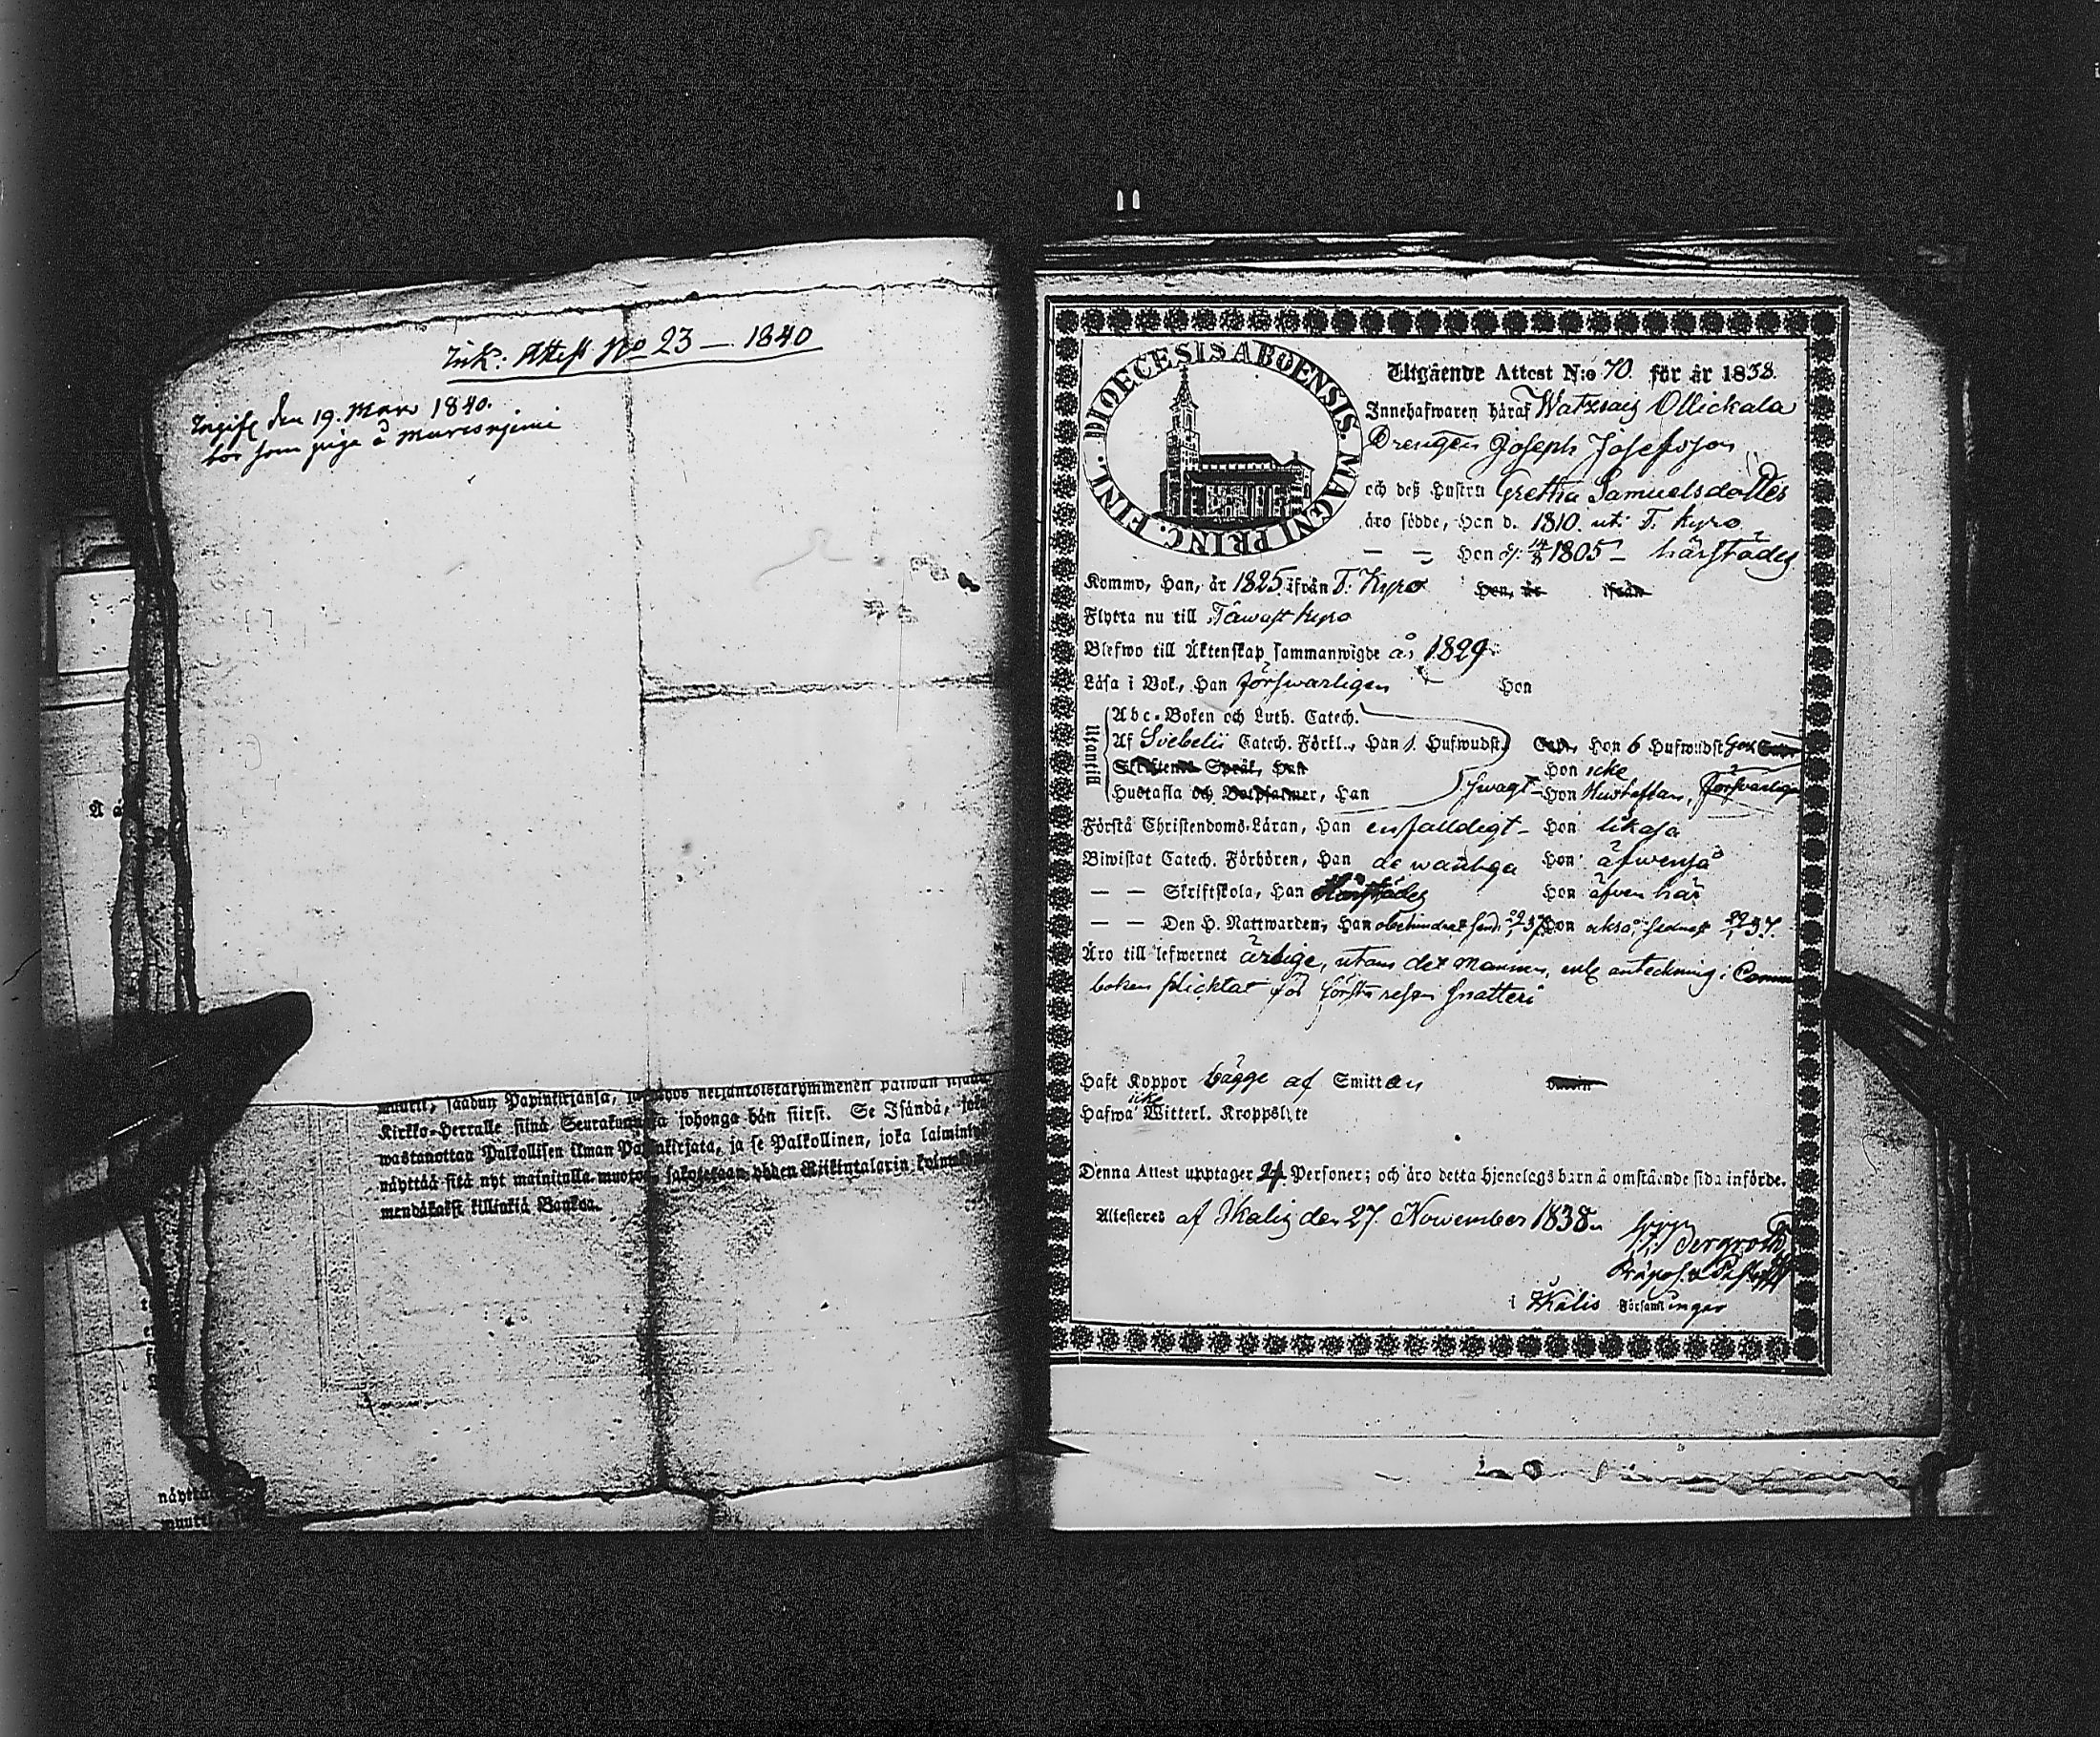 Ink: Attest No 23 — 1840
Ingift den 19. Mars 1840.
bor som piga å
muutti, saadun Papinkirjansa, neljäntoistakymmenen päiwän
Kirkko-Herralle siinä johonga hän siirsi. Se Isändä, joka
wastanottaa Palkollisen ilman Papinkirjata, ja se Palkollinen, joka
näyttää sitä nyt mainitulla muotoa,
mendäkaksi killinkiä Bankoa.
näyttä
muutti,
DIOECESIS ABOENSIS. MAGNI PRINC. FINL.
Utgående Attest N:o 70. för år 1838.
Innehafwaren häraf Ollickala
Drengen Joseph Josefsson
och deß Hustru Gretha Samuelsdotter
äro födde, Han d. 1810. uti T. Kyro
— — Hon d. 1805 — härstädes
Kommo, Han, år 1825 ifrån T. Kyro Hon, år ifrån
Flytta nu till Tawast Kyro
Blefwo till Äktenskap sammanwigde år 1829.
Läsa i Bok, Han försvarligen Hon
Utantill
Abc-Boken och Luth. Catech.
Af Svebelii Catech. Förkl., Han 1. Hufwudst. Hon 6 Hufwudst
Skriftenes Språk, Han Hon icke
Hustafla och Botpsalmer, Han swagt — Hon Hustaflan, försvarligen
Förstå Christendoms-Läran, Han enfalldigt — Hon likaså
Biwistat Catech. Förhören, Han de wanliga Hon äfwenså
— — Skriftskola, Han Härstädes Hon äfven här
— — Den H. Nattwarden, Han obehindrat Hon också, sednast
Äro till lefwernet ärlige, utom det mannen, enl. anteckning i Comm.
boken plicktat för första resan snatteri
Haft Koppor bägge af Smittan
Hafwa icke Witterl. Kroppslyte
Denna Attest upptager 4 Personer; och äro detta hjonelags barn å omstående sida införde.
Attesteres af Ikalis den 27. November 1838.
Bergroth
i Ikalis Församlingar